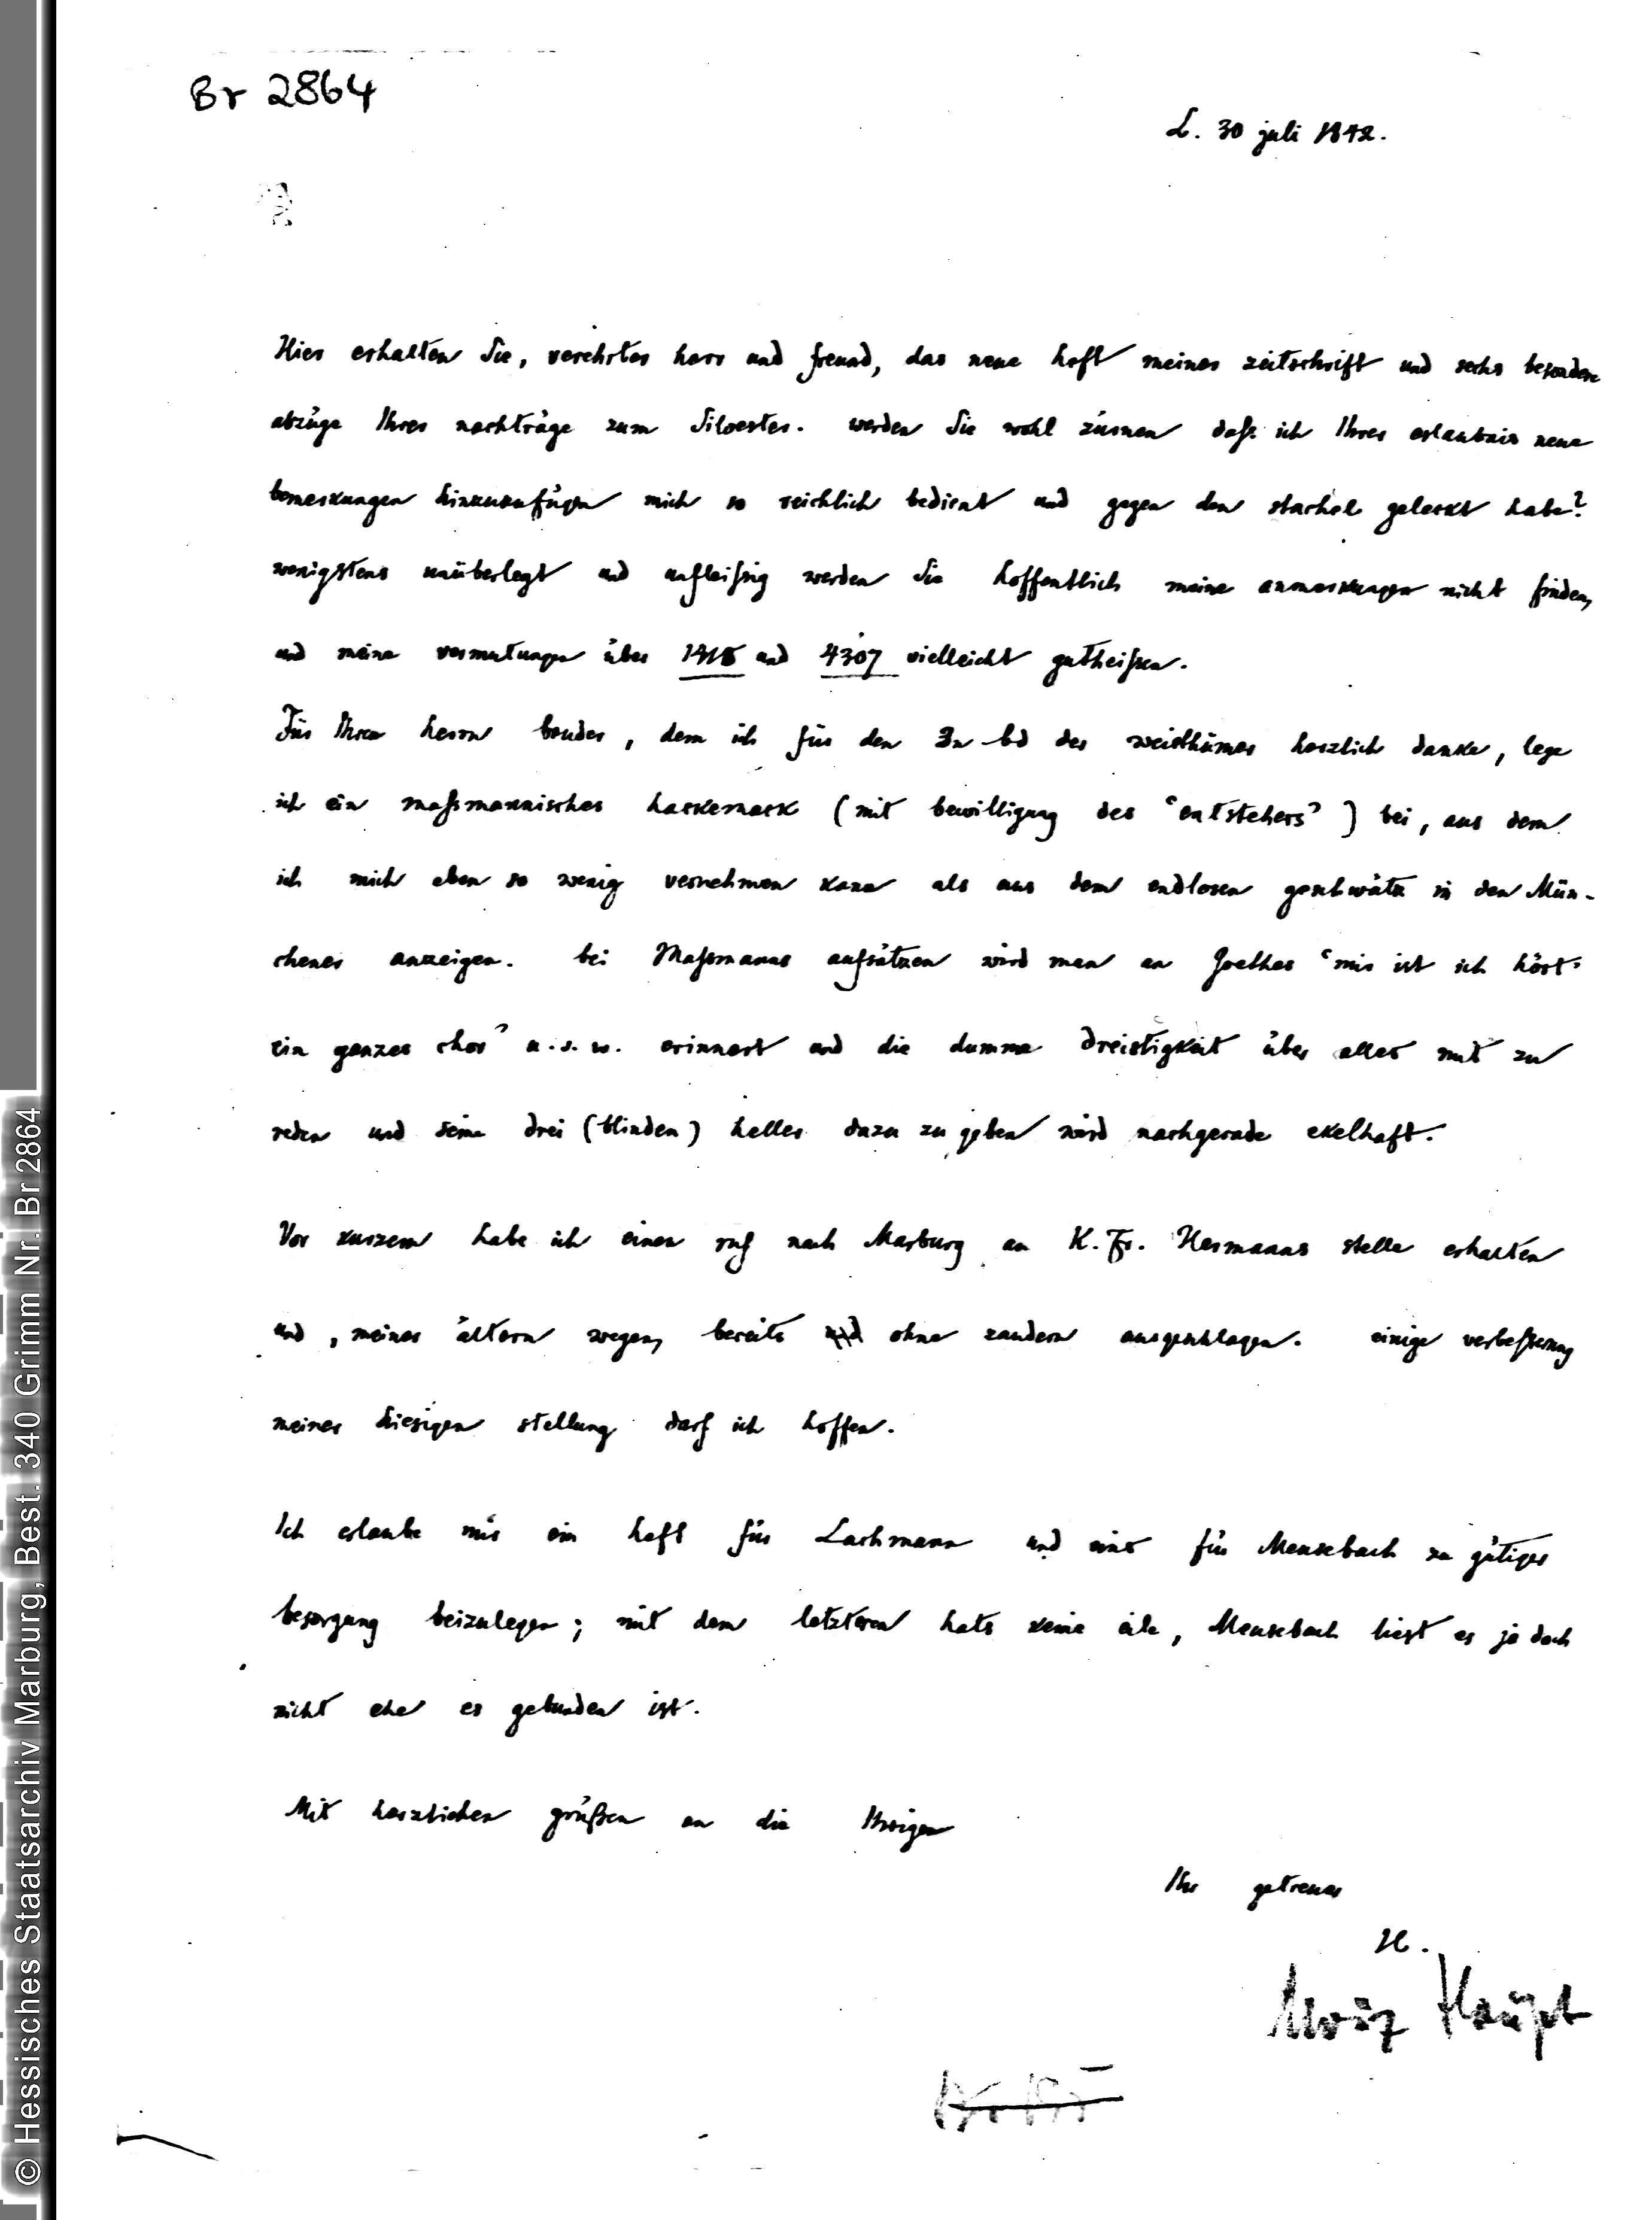 Br 2864
L. 30 juli 1842.
Hier erhalten Sie, verehrter herr und freund, das neue heft meiner zeitschrift und sechs besondere
abzüge Ihrer nachträge zum Silvester. werden Sie wohl zürnen daß ich Ihrer erlaubnis neue
bemerkungen hinzuzufügen mich so reichlich bedient und gegen den stachel geleckt habe?
wenigstens unüberlegt und unfleißig werden Sie hoffentlich meine anmerkungen nicht finden,
und meine vermutungen über 1915 und 4307 vielleicht gutheißen.
Für Ihren herrn bruder, dem ich für den 3n bd der weisthümer herzlich danke, lege
ich ein maßmannisches hackemack (mit bewilligung des ‘entstehers’) bei, aus dem
ich mich eben so wenig vernehmen kann als aus dem endlosen geschwätz in den Mün-
chener anzeigen. bei Maßmanns aufsätzen wird man an Goethes ‘mir ist ich hört’
ein ganzes chor’ u. s. w. erinnert und die dumme dreistigkeit über alles mit zu
reden und seine drei (blinden) heller dazu zu geben wird nachgerade ekelhaft.
Vor kurzem habe ich einen ruf nach Marburg an K. Fr. Hermanns stelle erhalten
und, meiner ältern wegen, bereits und ohne zaudern ausgeschlagen. einige verbeßerung
meiner hiesigen stellung darf ich hoffen.
Ich erlaube mir ein heft für Lachmann und eins für Meusebach zu gütiger
besorgung beizulegen; mit dem letzteren hats keine eile, Meusebach liest es ja doch
nicht eher es gebunden ist.
Mit herzlichen grüßen an die Ihrigen
Ihr getreuer
H.
Moriz Haupt
© Hessisches Staatsarchiv Marburg, Best. 340 Grimm Nr. Br 2864